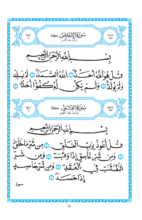 سُورَةُ الإِخْلَاصِ
بِسْمِ اللَّهِ الرَّحْمَٰنِ الرَّحِيمِ
قُلْ هُوَ اللَّهُ أَحَدٌ اللَّهُ الصَّمَدُ لَمْ يَلِدْ
وَلَمْ يُولَدْ وَلَمْ يَكُن لَّهُ كُفُوًا أَحَدٌ
سُورَةُ الفَلَقِ
بِسْمِ اللَّهِ الرَّحْمَٰنِ الرَّحِيمِ
قُلْ أَعُوذُ بِرَبِّ الْفَلَقِ مِن شَرِّ مَا خَلَقَ
وَمِن شَرِّ غَاسِقٍ إِذَا وَقَبَ وَمِن شَرِّ
النَّفَّاثَاتِ فِي الْعُقَدِ وَمِن شَرِّ حَاسِدٍ
إِذَا حَسَدَ
سورة